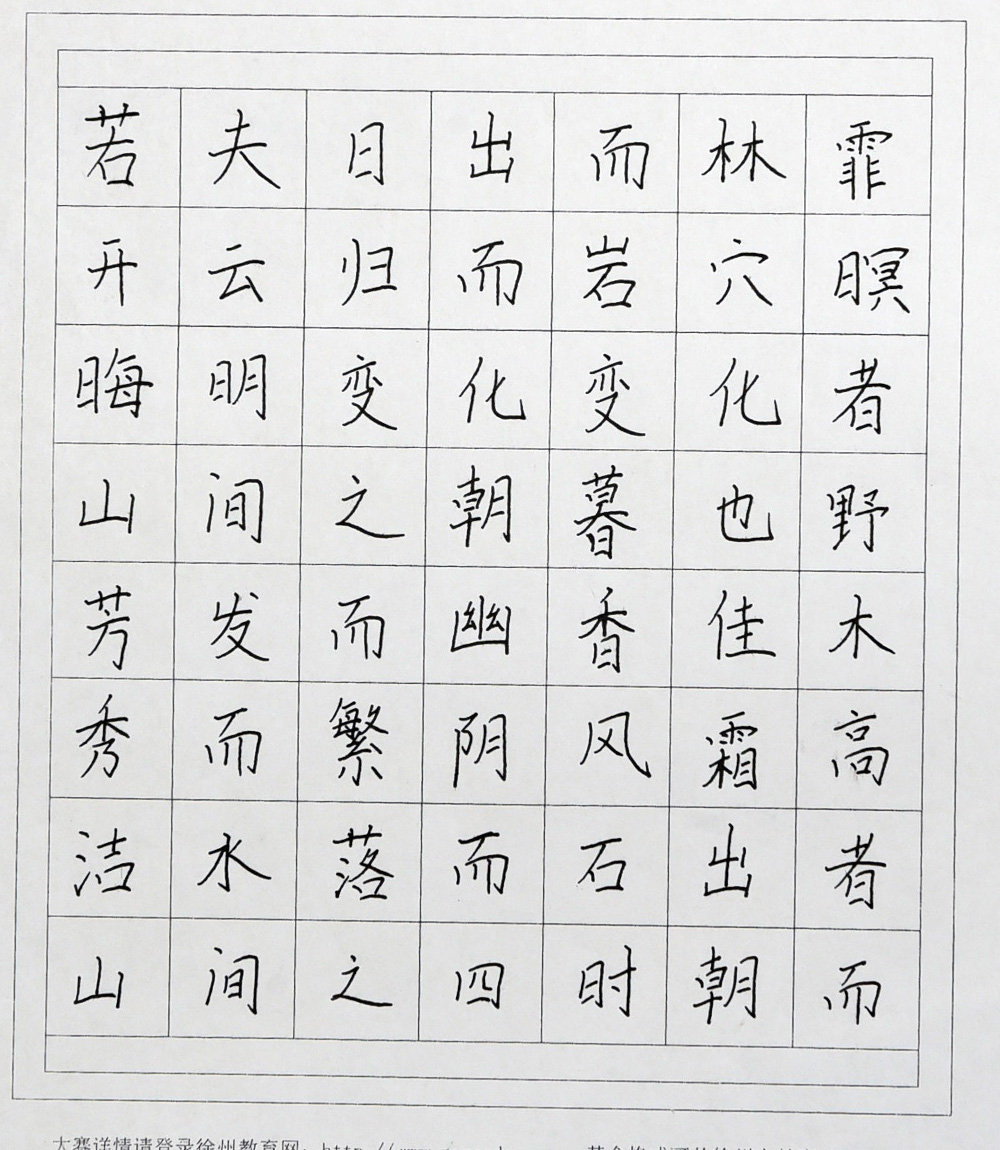 若夫日出而林霏
开云归而岩穴暝
晦明变化变化者
山间之朝暮也野
芳发而幽香佳木
秀而繁阴风霜高
洁水落而石出者
山间之四时朝而
大赛详情请登录徐州教育网